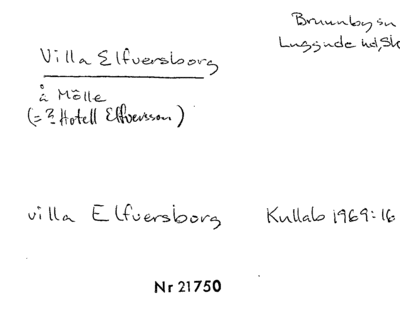 Brunnby sn
Luggude hd, Sk
Villa Elfversborg
å Mölle
(= ? Hotell Elfversson)
villa Elfversborg Kullab 1969:16
Nr 21750